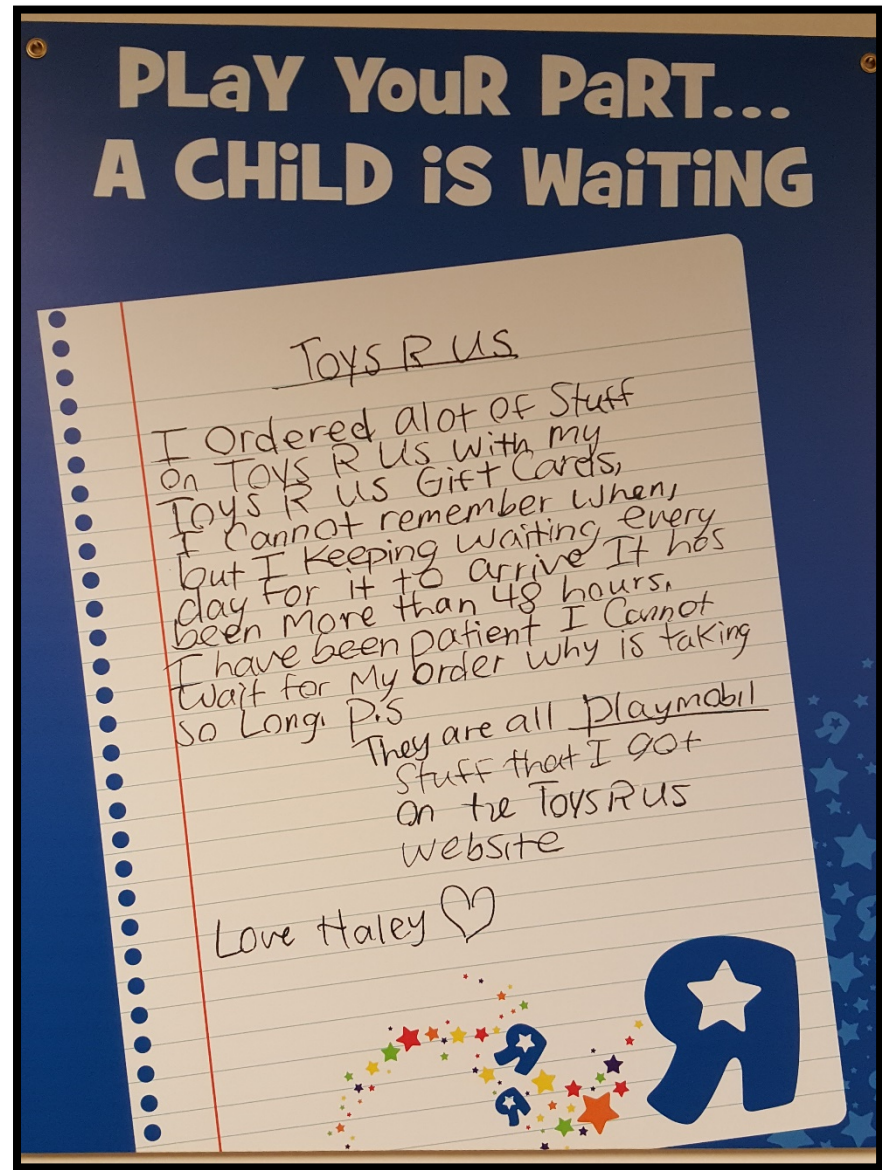 PLaY YouR PaRT...
A CHiLD iS WaiTiNG
Toys R US
I Ordered alot Of Stuff
On Toys R Us With my
Toys R us Gift Cards,
I Cannot remember when,
but I Keeping waiting every
day For it to arrive It has
been More than 48 hours.
I have been patient I Cannot
wait for My order why is taking
so Long. P.S
They are all Playmobil
Stuff that I got
On the Toys R us
website
Love Haley ♡
R
R
R